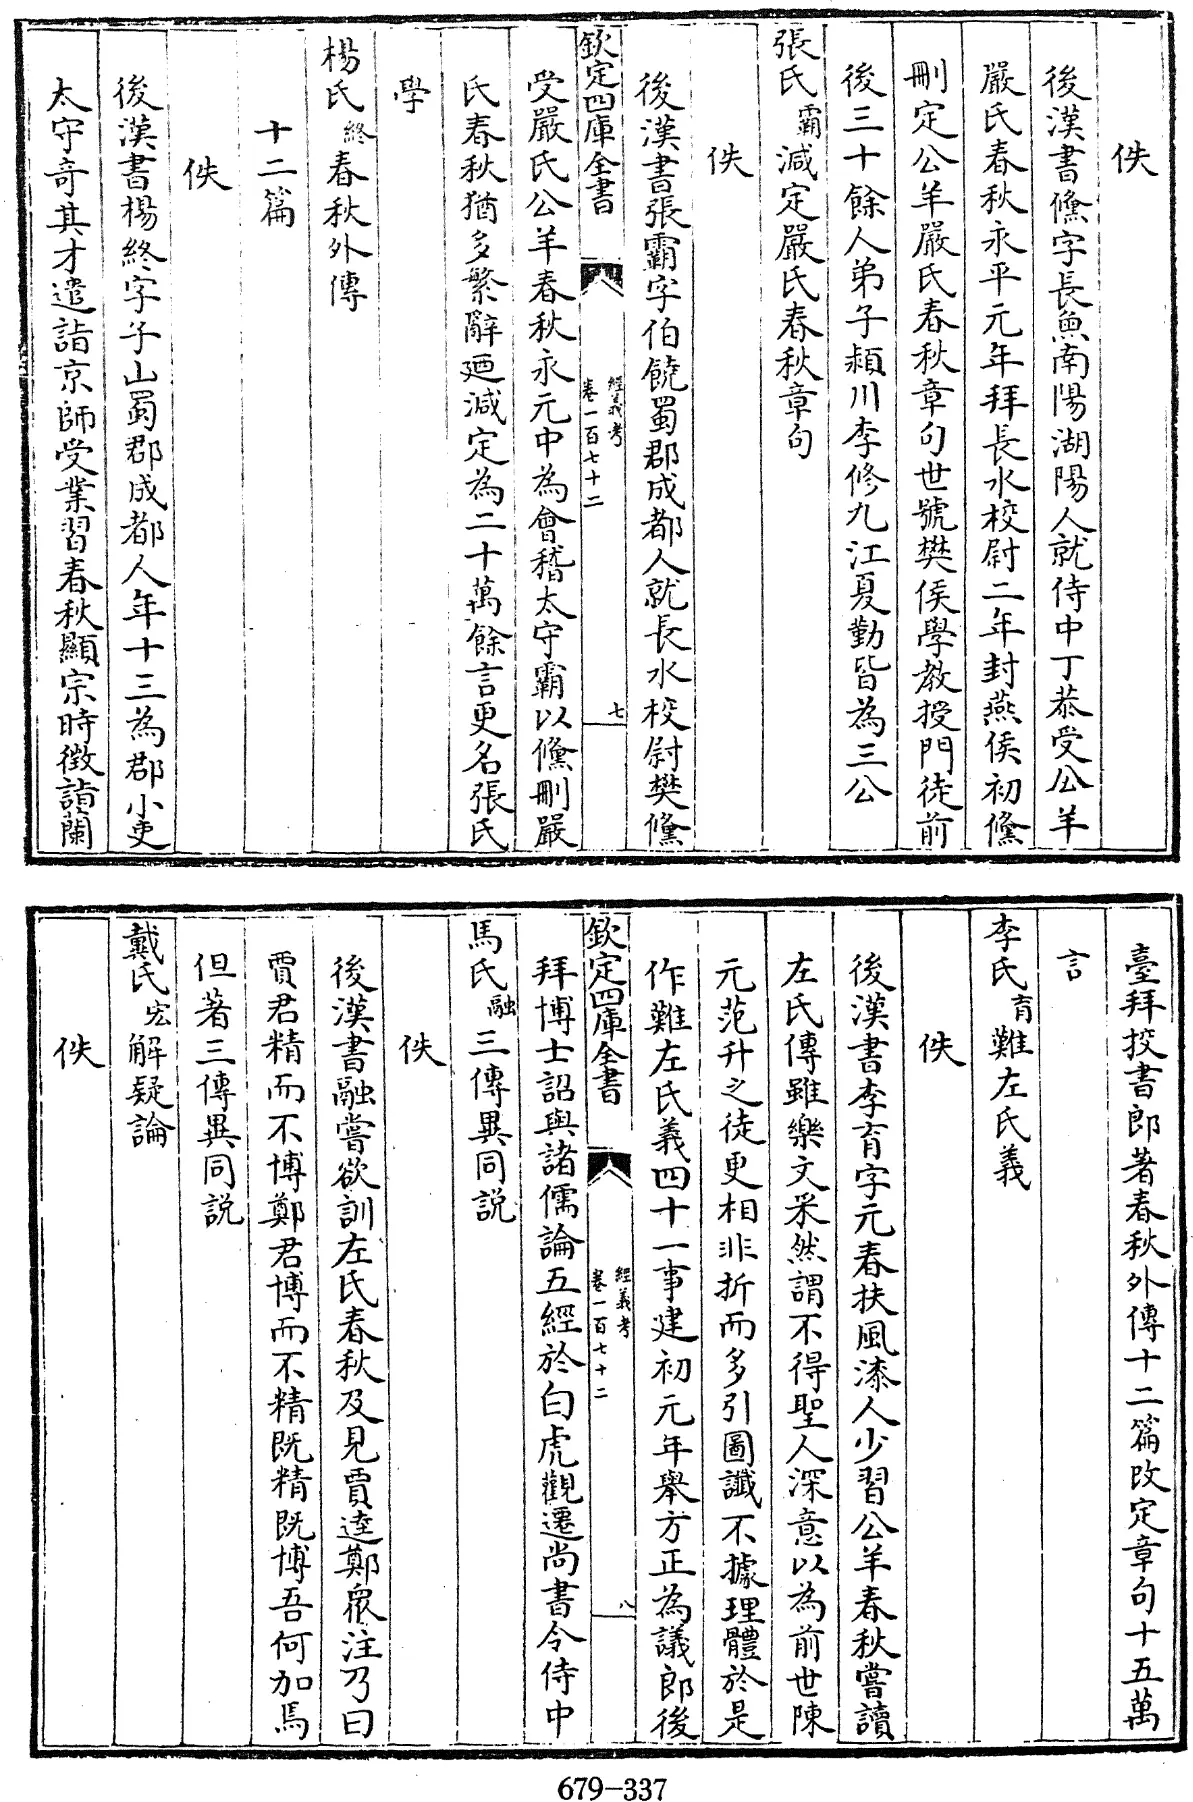 佚
後漢書儵字長魚南陽湖陽人就侍中丁恭受公羊
嚴氏春秋永平元年拜長水校尉二年封燕侯初儵
刪定公羊嚴氏春秋章句世號樊侯學教授門徒前
後三十餘人弟子潁川李修九江夏勤皆為三公
張氏霸減定嚴氏春秋章句
佚
後漢書張霸字伯饒蜀郡成都人就長水校尉樊儵
欽定四庫全書 經義考 卷一百七十二 七
受嚴氏公羊春秋永元中為會稽太守霸以儵刪嚴
氏春秋猶多繁辭廼減定為二十萬餘言更名張氏
學
楊氏終春秋外傳
十二篇
佚
後漢書楊終字子山蜀郡成都人年十三為郡小吏
太守奇其才遣詣京師受業習春秋顯宗時徵詣蘭
臺拜挍書郎著春秋外傳十二篇改定章句十五萬
言
李氏育難左氏義
佚
後漢書李育字元春扶風漆人少習公羊春秋嘗讀
左氏傳雖樂文采然謂不得聖人深意以為前世陳
元范升之徒更相非折而多引圖讖不據理體於是
作難左氏義四十一事建初元年舉方正為議郎後
欽定四庫全書 經義考 卷一百七十二 八
拜博士詔與諸儒論五經於白虎觀遷尚書令侍中
馬氏融三傳異同説
佚
後漢書融嘗欲訓左氏春秋及見賈逵鄭眾注乃曰
賈君精而不博鄭君博而不精既精既博吾何加焉
但著三傳異同説
戴氏宏解疑論
佚
679-337